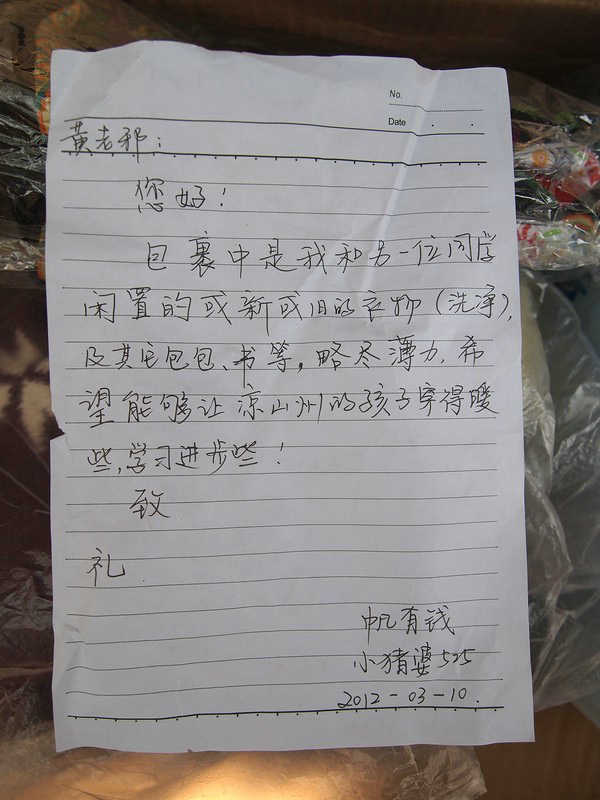 No.
Date
黄老邪：
您好！
包裹中是我和另一位同学
闲置的或新或旧的衣物（洗净），
及其它包包、书等，略尽薄力，希
望能够让凉山州的孩子穿得暖
些，学习进步些！
致
礼
帆有钱
小猪婆525
2012-03-10.